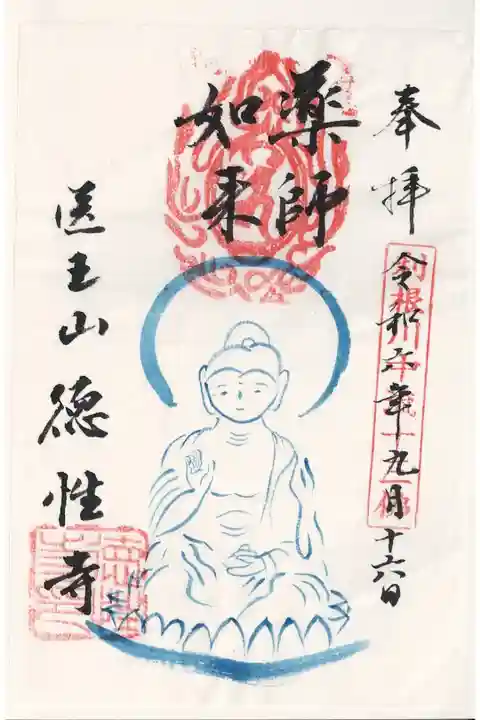 奉拝
令和六年十九月十六日
薬師
如来
医王山 徳性寺